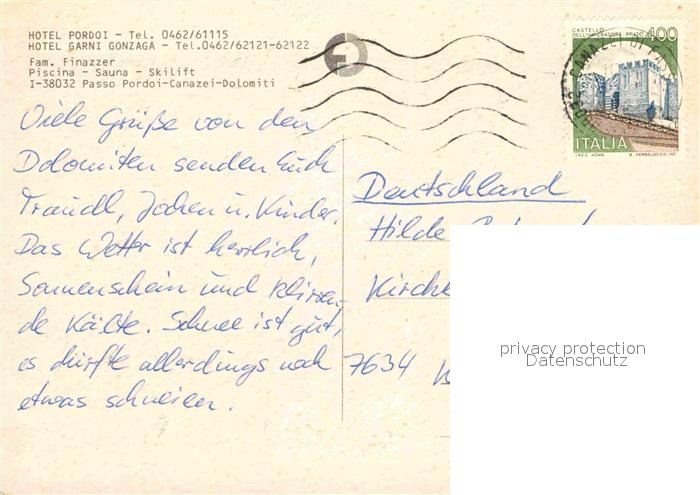 HOTEL PORDOI - Tel. 0462/61115
HOTEL GARNI GONZAGA - Tel.0462/62121-62122
Fam. Finazzer
Piscina - Sauna - Skilift
I-38032 Passo Pordoi-Canazei-Dolomiti
Viele Grüße von den
Dolomiten senden Euch
Traudl, Jochen u. Kinder.
Das Wetter ist herrlich,
Sonnenschein und klirren-
de Kälte. Schnee ist gut,
es dürfte allerdings noch
etwas schneien.
CASTELLO
DELL'IMPERATORE - PRATO
400
ITALIA
I.P.Z.S. ROMA
Deutschland
Hilde
Kirche
7634
privacy protection
Datenschutz